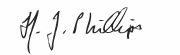 H. J. Phillips